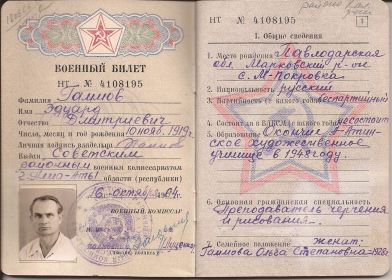 ВОЕННЫЙ БИЛЕТ
НТ № 4108195
Фамилия
Имя Эдуард
Отчество Дмитриевич
Число, месяц и год рождения 10 нояб. 1919 г.
Личная подпись владельца
Выдан Советским
районным военным комиссариатом
г. Алма-Аты области (республики)
16 октября 64 г.
ВОЕННЫЙ КОМИССАР
НТ № 4108195
1
I. Общие сведения
1. Место рождения Павлодарская
обл. р-он
с. М-Покровка
2. Национальность русский
3. Партийность (с какого года) беспартийный
4. Состоит ли в ВЛКСМ (с какого года) не состоит
5. Образование Окончил А-Атин-
ское художественное
училище в 1948 году.
6. Основная гражданская специальность
Преподаватель черчения
и рисования.
7. Семейное положение женат:
Ольга Степановна